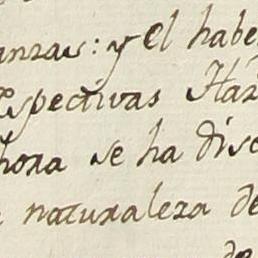 anzas: y el habe
espectivas Haz
hora se ha dis
naturaleza de
de